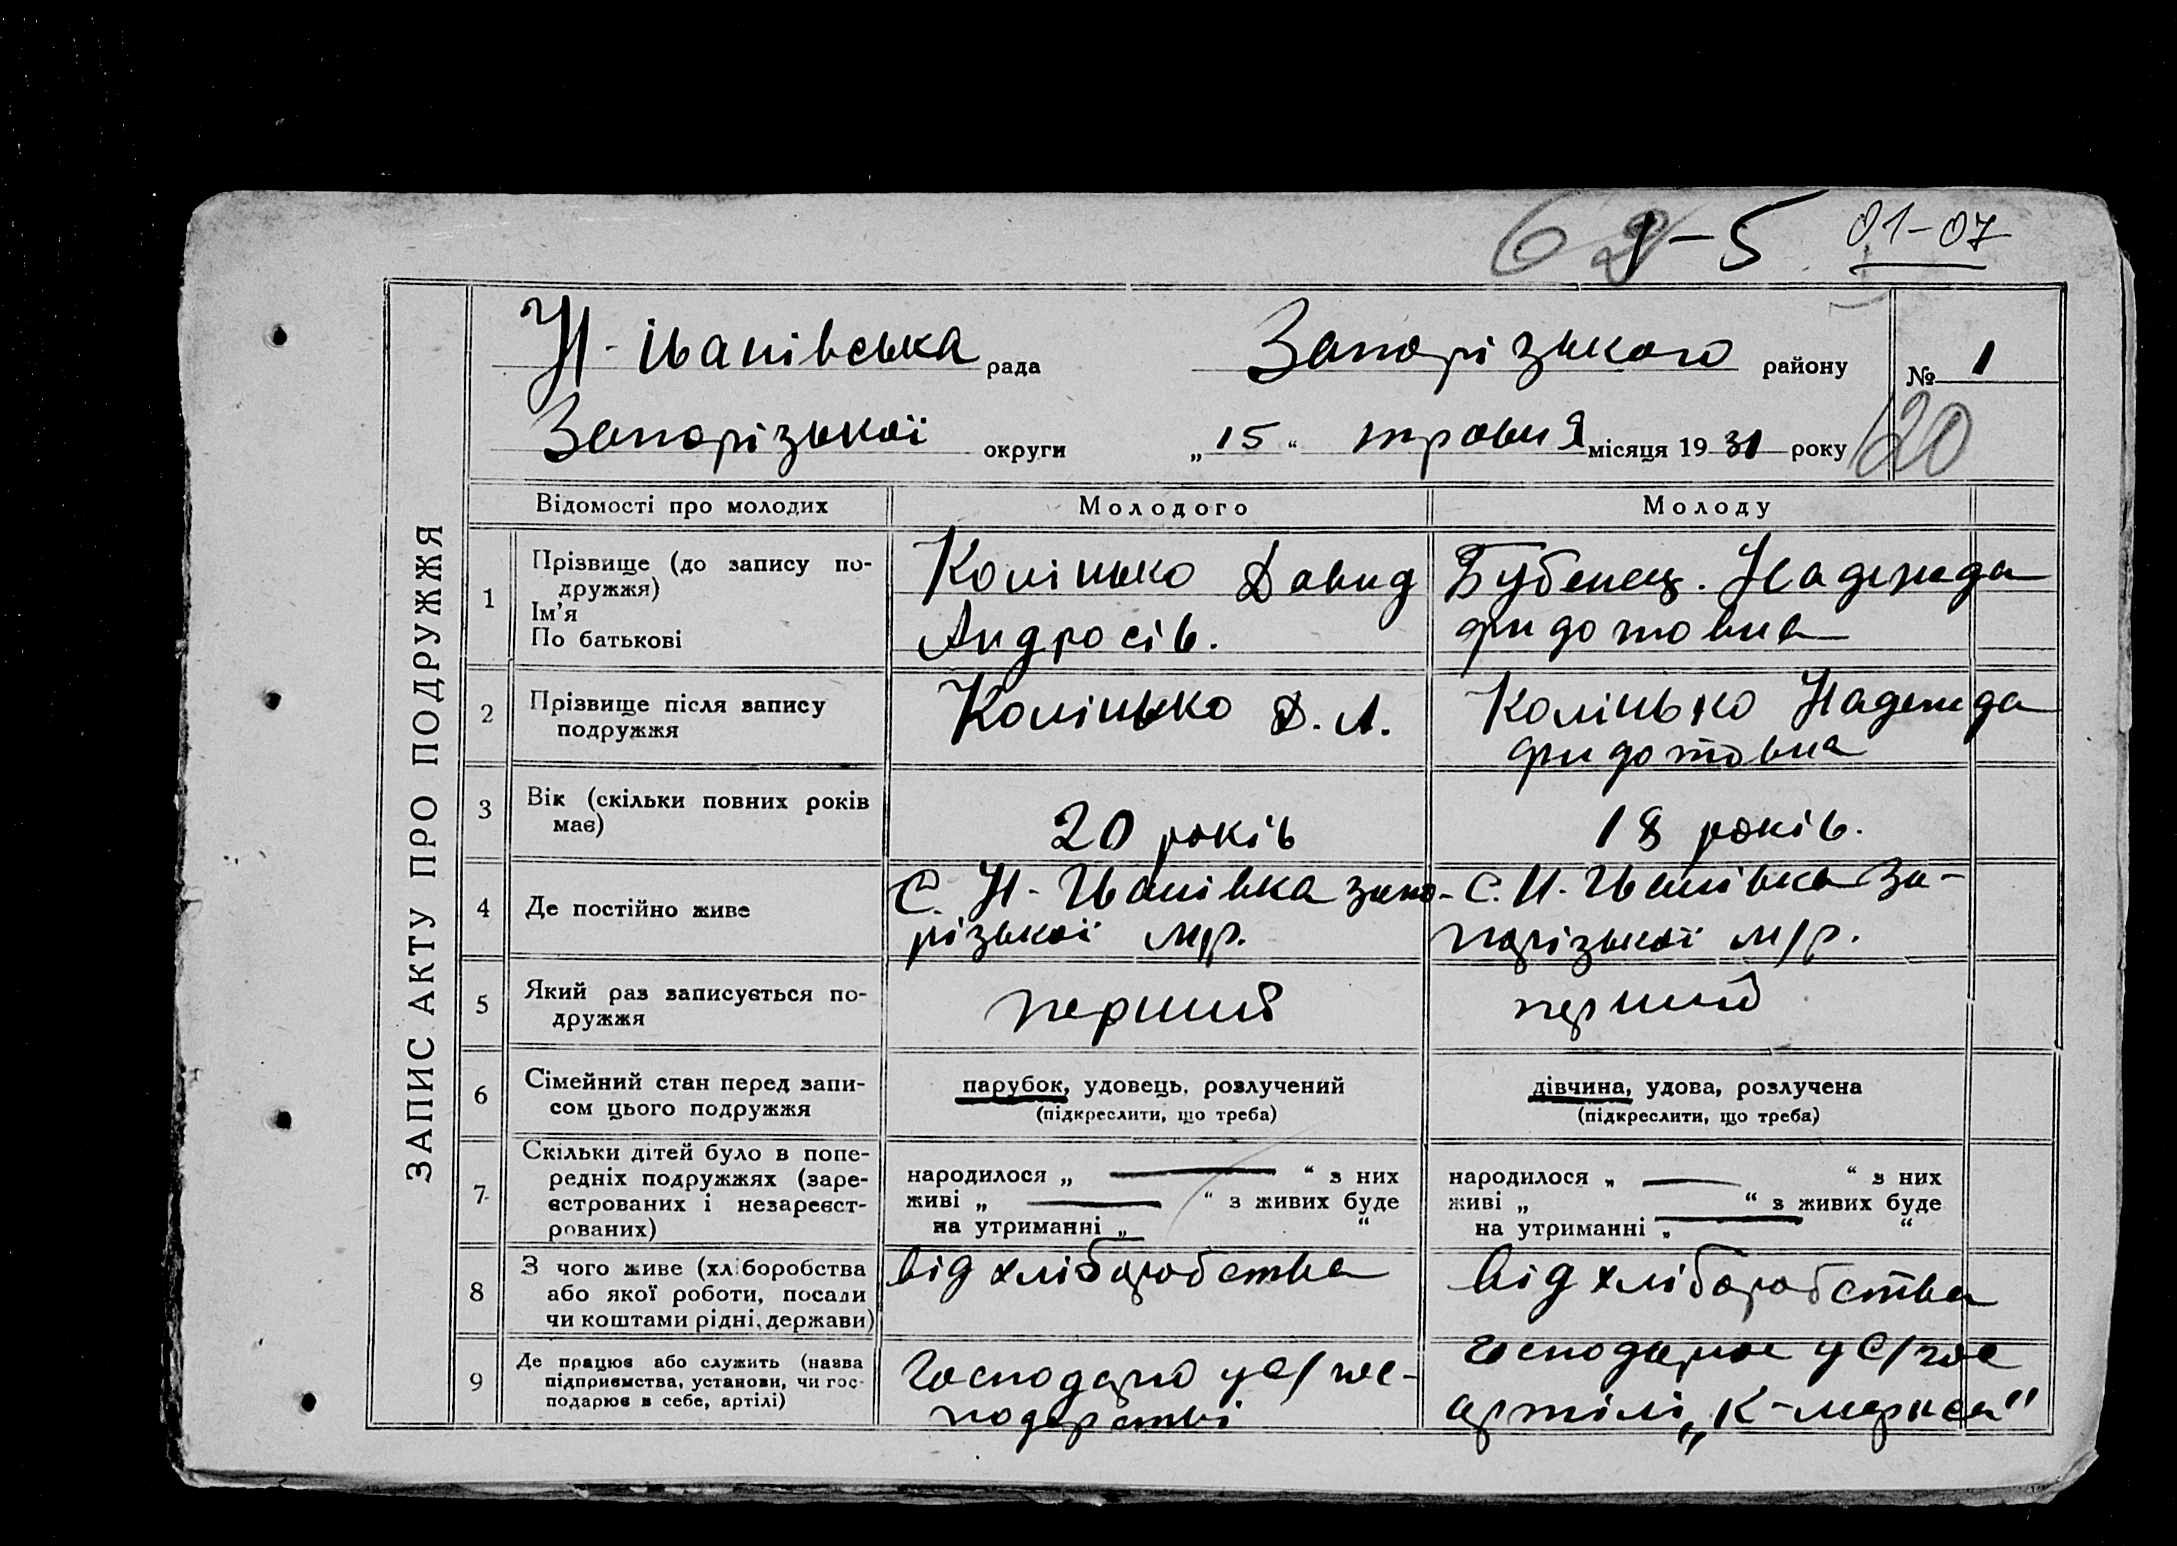 1-5 01-07
ЗАПИС АКТУ ПРО ПОДРУЖЖЯ
Н-Іванівська рада Запорізького району № 1
Запорізької округи „15“ травня місяця 1931 року 120
Відомості про молодих Молодого Молоду
1 Прізвище (до запису по-
дружжя)
Ім'я
По батькові
Колінько Давид
Андросів.
Бубенец. Надежда
Фидотовна
2 Прізвище після запису
подружжя
Колінько Д. А.
Колінько Надежда
Фидотовна
3 Вік (скільки повних років
має)
20 років
18 років.
4 Де постійно живе
С. Н-Іванівка запо-
різької м/р.
С. Н-Іванівка За-
порізької м/р.
5 Який раз записується по-
дружжя
перший
перший
6 Сімейний стан перед запи-
сом цього подружжя
парубок, удовець, розлучений
(підкреслити, що треба)
дівчина, удова, розлучена
(підкреслити, що треба)
7 Скільки дітей було в попе-
редніх подружжях (заре-
єстрованих і незареєст-
рованих)
народилося „ “ з них
живі „ “ з живих буде
на утриманні „ “
народилося „ “ з них
живі „ “ з живих буде
на утриманні „ “
8 З чого живе (хліборобства
або якої роботи, посади
чи коштами рідні, держави)
від хліборобства
від хліборобства
9 Де працює або служить (назва
підприємства, установи, чи гос-
подарює в себе, артілі)
Господарю у С/гос-
подарстві
господарює у С/гос
артілі „К-маркса"